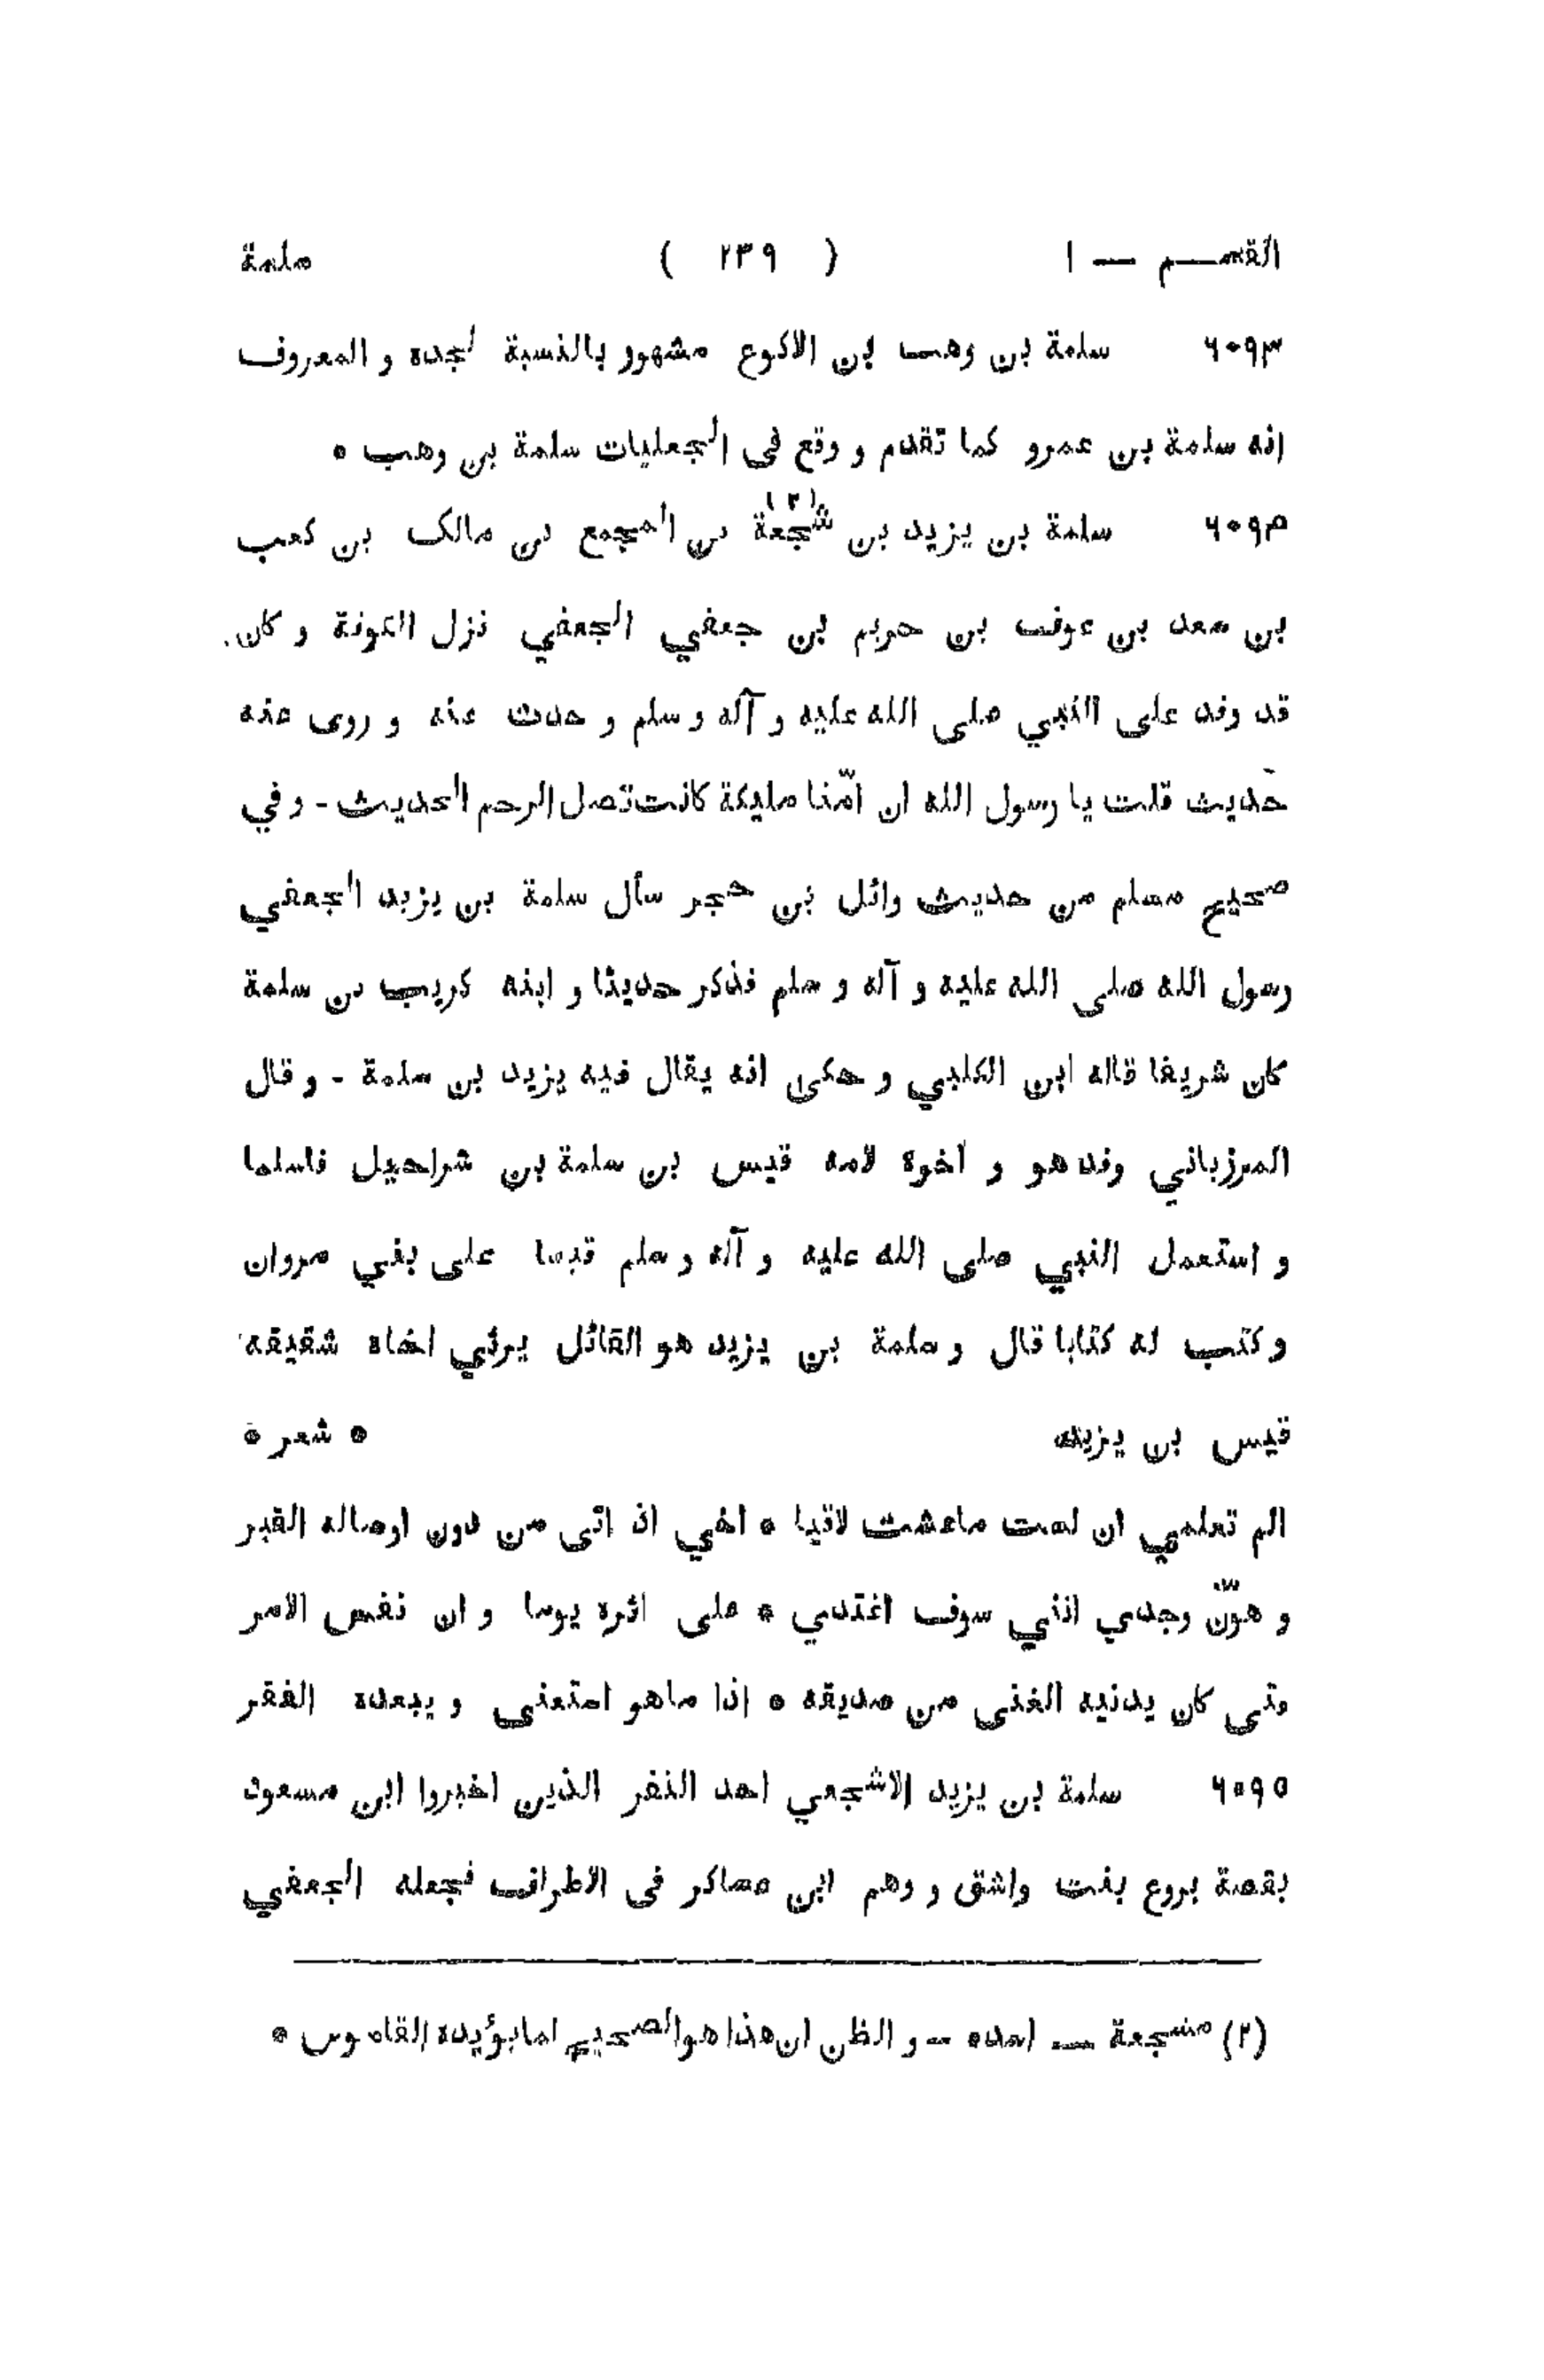 القسم — ١ ( ٢٣٩ ) سلمة
٦٠٩٣ سلمة بن وهب بن الاكوع مشهور بالنسبة لجده و المعروف
انه سلمة بن عمرو كما تقدم و وقع فى الجعليات سلمة بن وهب *
٦٠٩٤ سلمة بن يزيد بن شجعة (٢) بن المجمع بن مالك بن كعب
بن سعد بن عوف بن حريم بن جعفي الجعفي نزل الكوفة و كان
قد وفد على النبي صلى الله عليه و آله و سلم و حدث عنه و روى عنه
حديث قلت يا رسول الله ان امّنا مليكة كانت تصل الرحم الحديث - و في
صحيح مسلم من حديث وائل بن حجر سأل سلمة بن يزيد الجعفي
رسول الله صلى الله عليه و آله و سلم فذكر حديثا و ابنه كريب بن سلمة
كان شريفا قاله ابن الكلبي و حكى انه يقال فيه يزيد بن سلمة - و قال
المرزباني وفد هو و اخوة لامه قيس بن سلمة بن شراحيل فاسلما
و استعمل النبي صلى الله عليه و آله و سلم قيسا على بني مروان
و كتب له كتابا قال و سلمة بن يزيد هو القائل يرثي اخاه شقيقه
قيس بن يزيد * شعر *
الم تعلمي ان لست ماعشت لاقيا * اخي اذ اتى من دون اوصاله القبر
و هوّن وجدي انني سوف اغتدي * على اثره يوما و ان نفس الامر
فتى كان يدنيه الغنى من صديقه * اذا ماهو استغنى و يبعده الفقر
٦٠٩٥ سلمة بن يزيد الاشجعي احد النفر الذين اخبروا ابن مسعود
بقصة بروع بنت واشق و وهم ابن عساكر فى الاطراف فجعله الجعفي
(٢) مشجعة — اسده - و الظن ان هذا هو الصحيح لما يؤيده القاموس *